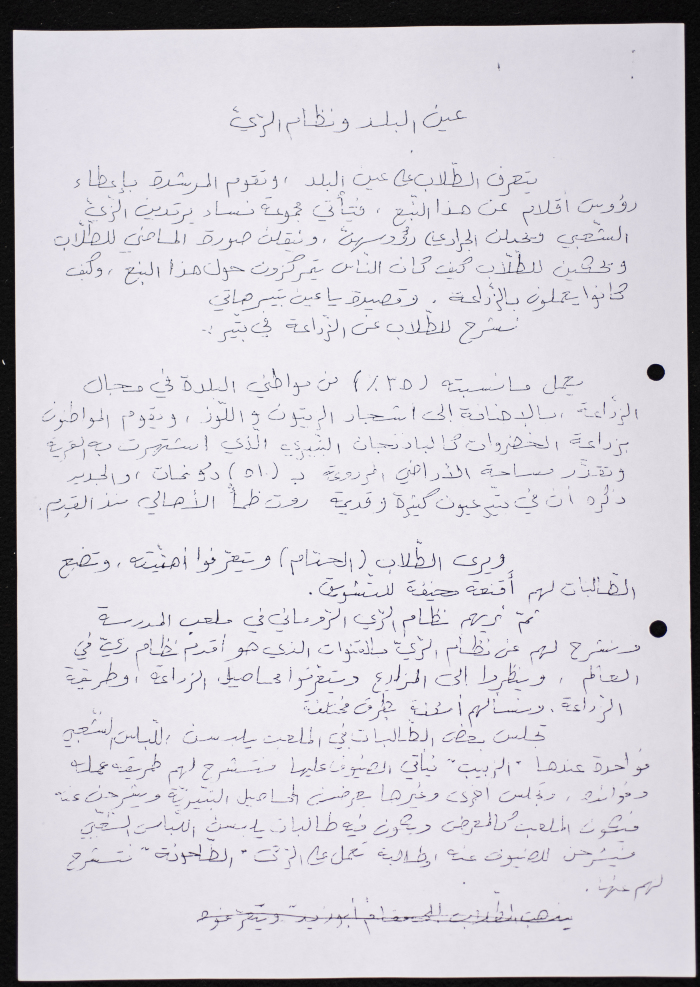 عين البلد ونظام الريّ
يتعرف الطلّاب على عين البلد ، وتقوم المرشدة بإعطاء
رؤوس أقلام عن هذا النبع ، فتأتي مجموعة نساء يرتدين الزيّ
الشعبي ويحملن الجرار على رؤوسهنّ ، وينقلن صورة الماضي للطلّاب
ويحكين للطلّاب كيف كان النّاس يتمركزون حول هذا النبع ، وكيف
كانوا يعملون بالزراعة . وقصيدة يا عين بتير هاتي
نشرح للطلاب عن الزراعة في بتّير :.
يعمل ما نسبته (٣٥٪) من مواطني البلدة في مجال
الزراعة ، بالإضافة إلى اشجار الزيتون و اللّوز ، ويقوم المواطنون
بزراعة الخضروات كالباذنجان البتيري الذي اشتهرت به القرية
وتقدّر مساحة الأراضي المزروعة بـ (٥١٠) دونمات ، والجدير
ذكره أن في بتير عيون كثيرة وقديمة روت ظمأ الأهالي منذ القِدم.
ويرى الطلّاب (الحمّام) ويتعرفوا أهميّته ، وتضع
الطّالبات لهم أقنعة مخيفة للتشويق .
ثمّ نريهم نظام الريّ الروماني في ملعب المدرسة
ونشرح لهم عن نظام الريّ بالقنوات الذي هو أقدم نظام ريّ في
العالم ، وينظروا إلى المزارع ويتعرّفوا محاصيل الزراعة ، وطريقة
الزراعة . ونسألهم أسئلة بطرق مختلفة
تجلس بعض الطّالبات في الملعب يلبسن اللّباس الشّعبي
فواحدة عندها "الزبيب" فيأتي الضيوف عليها فتشرح لهم طريقة عمله
وفوائده ، وتجلس اخرى وغيرها يعرضن المحاصيل البتيريّة ويشرحن عنه
فيكون الملعب كالمعرض ويكون فيه طالبات يلبسن اللّباس الشّعبيّ
فيشرحن للضيوف عنه وطالبة تعمل على الرّحى "الطّاحونة" فتشرح
لهم عنها .
يذهب الطّلاب إلى مقام أبو زيد ويتعرّفوه